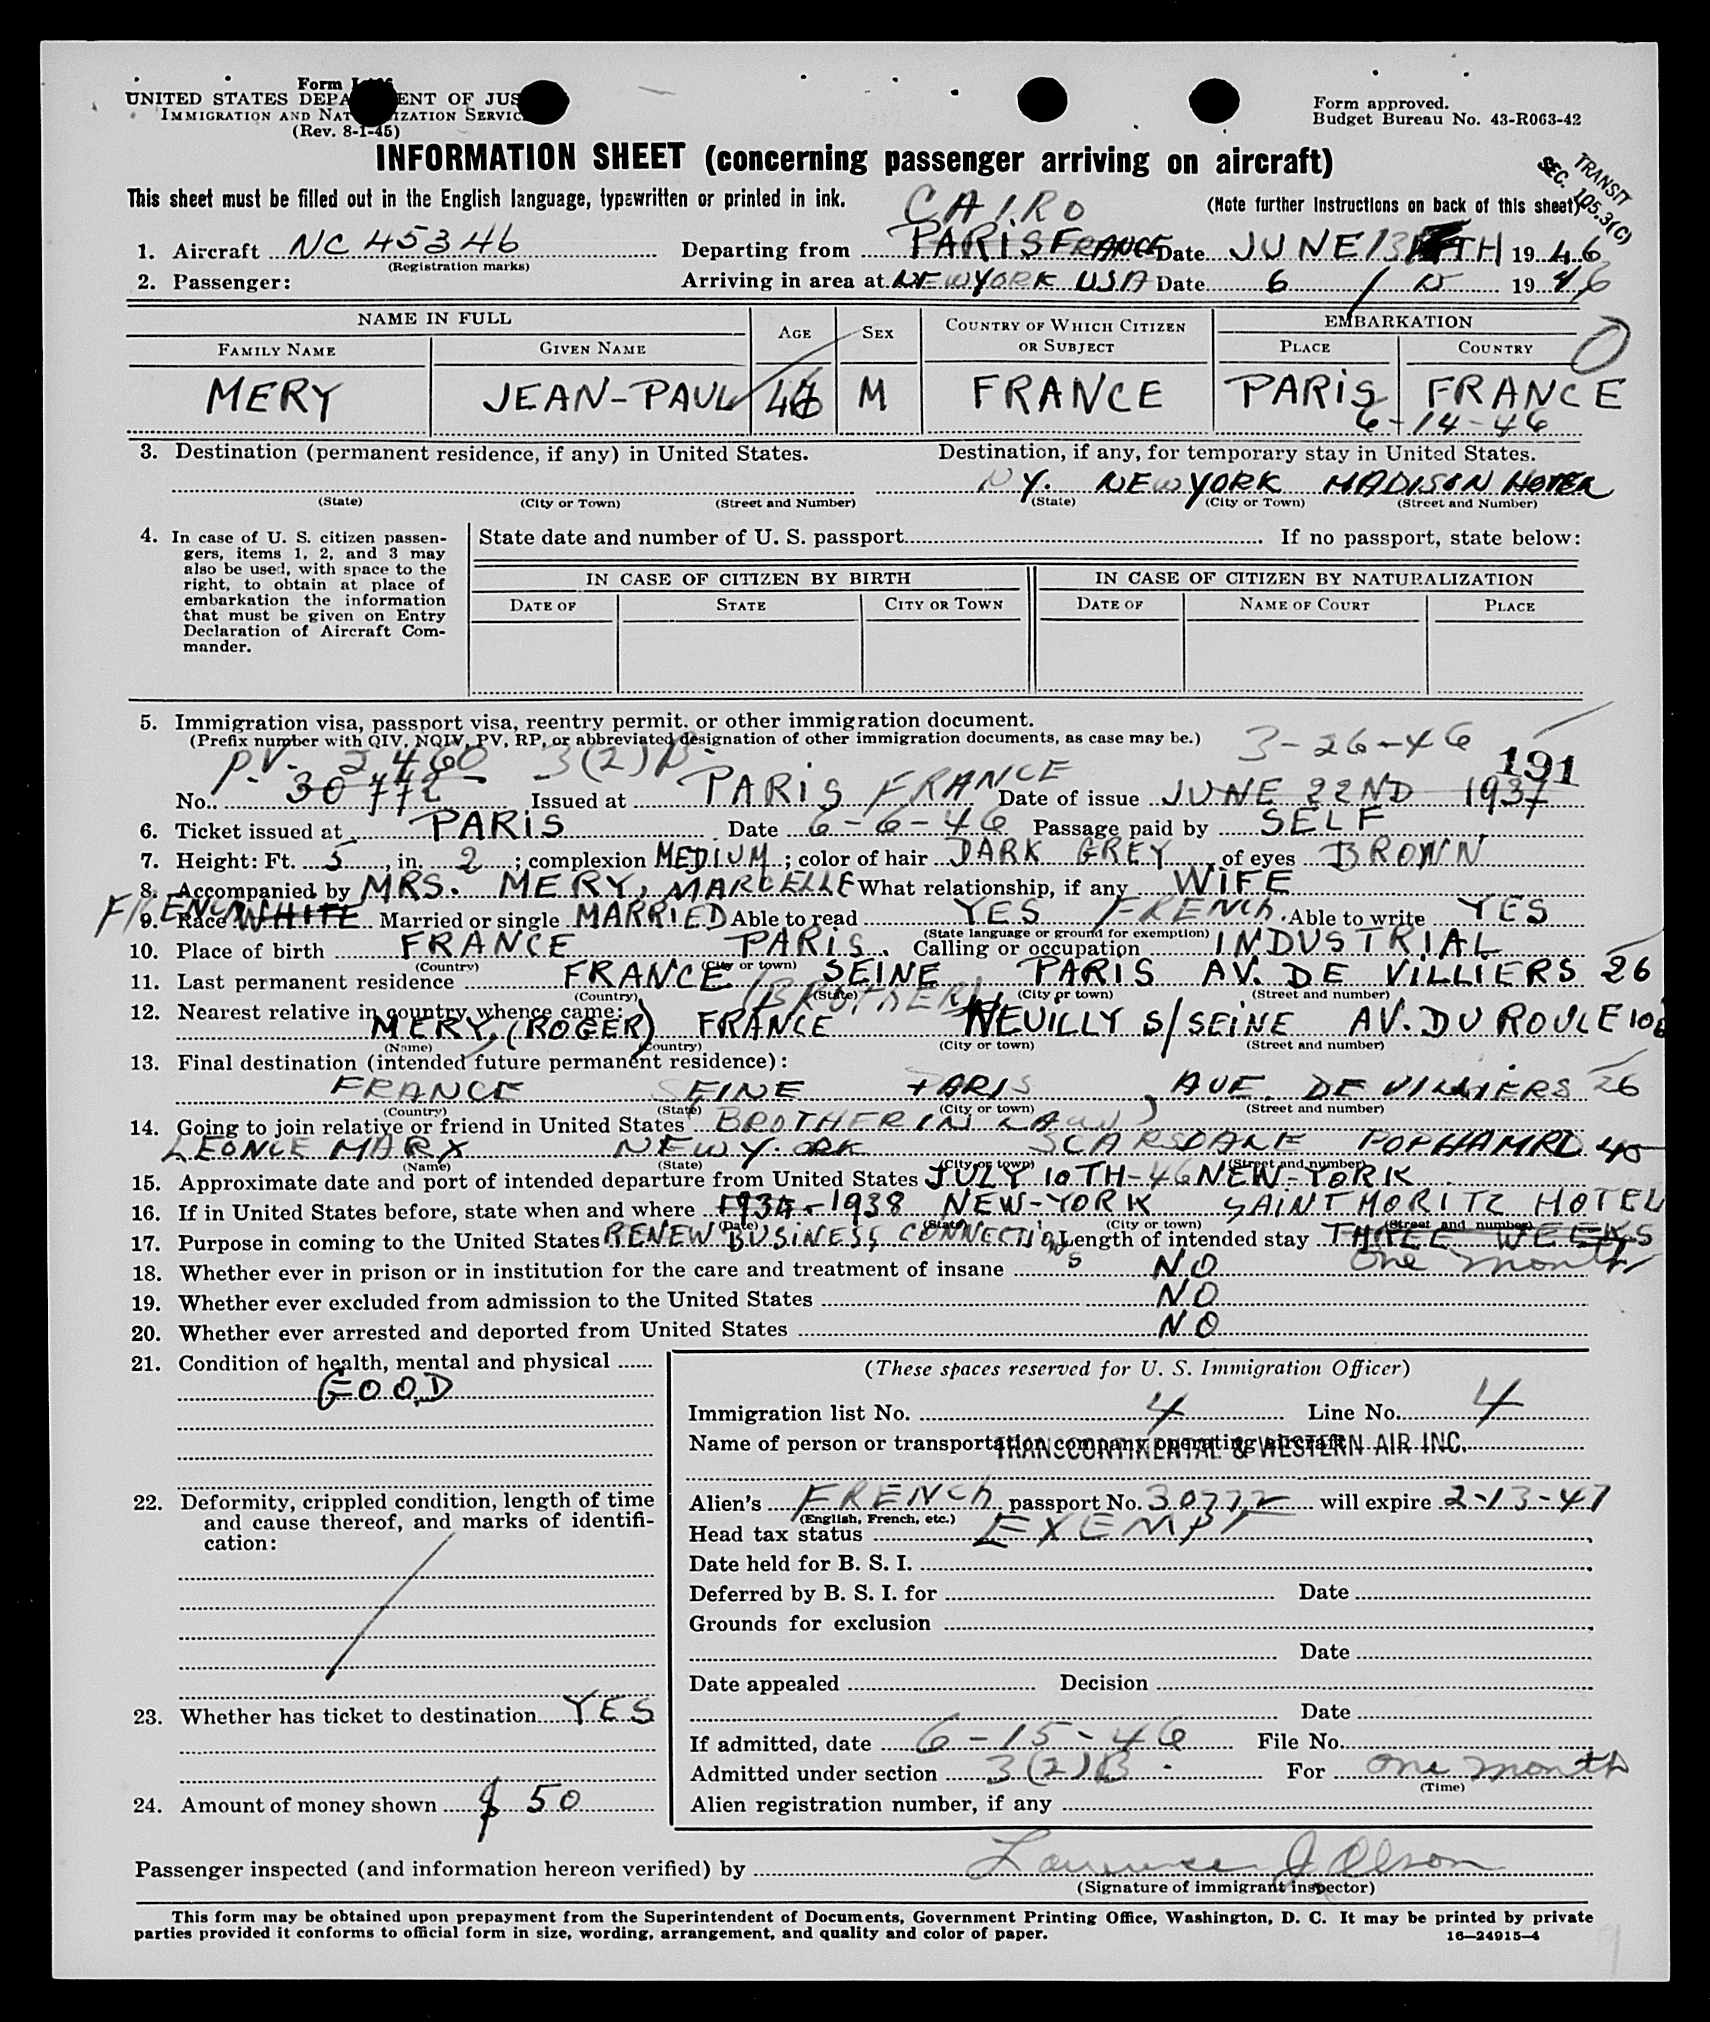 Form I-466
UNITED STATES DEPARTMENT OF JUSTICE
IMMIGRATION AND NATURALIZATION SERVICE
(Rev. 8-1-45)
Form approved.
Budget Bureau No. 43-R063-42
INFORMATION SHEET (concerning passenger arriving on aircraft)
TRANSIT
SEC. 105.3(C)
This sheet must be filled out in the English language, typewritten or printed in ink.
(Note further instructions on back of this sheet)
CAIRO
1. Aircraft NC 45346 Departing from PARIS FRANCE Date JUNE 13TH 1946
(Registration marks)
2. Passenger: Arriving in area at NEW YORK USA Date 6/15 1946
NAME IN FULL AGE SEX COUNTRY OF WHICH CITIZEN OR SUBJECT EMBARKATION
FAMILY NAME GIVEN NAME PLACE COUNTRY
O
MERY JEAN-PAUL 46 M FRANCE PARIS FRANCE
6-14-46
3. Destination (permanent residence, if any) in United States. Destination, if any, for temporary stay in United States.
NY. NEW YORK MADISON HOTEL
(State) (City or Town) (Street and Number) (State) (City or Town) (Street and Number)
4. In case of U. S. citizen passengers, items 1, 2, and 3 may also be used, with space to the right, to obtain at place of embarkation the information that must be given on Entry Declaration of Aircraft Commander.
State date and number of U. S. passport If no passport, state below:
IN CASE OF CITIZEN BY BIRTH IN CASE OF CITIZEN BY NATURALIZATION
DATE OF STATE CITY OR TOWN DATE OF NAME OF COURT PLACE
5. Immigration visa, passport visa, reentry permit, or other immigration document.
(Prefix number with QIV, NQIV, PV, RP, or abbreviated designation of other immigration documents, as case may be.)
P.V. 2460 3(2)B 3-26-46 191
No. 30772 Issued at PARIS FRANCE Date of issue JUNE 22ND 1937
6. Ticket issued at PARIS Date 6-6-46 Passage paid by SELF
7. Height: Ft. 5, in. 2; complexion MEDIUM; color of hair DARK GREY, of eyes BROWN
8. Accompanied by MRS. MERY, MARCELLE What relationship, if any WIFE
FRENCH
9. Race WHITE Married or single MARRIED Able to read YES FRENCH. Able to write YES
(State language or ground for exemption)
10. Place of birth FRANCE PARIS. Calling or occupation INDUSTRIAL
(Country) (City or town)
11. Last permanent residence FRANCE SEINE PARIS AV. DE VILLIERS 26
(Country) (State) (City or town) (Street and number)
(BROTHER)
12. Nearest relative in country whence came:
MERY, (ROGER) FRANCE NEUILLY S/SEINE AV. DU ROULE
(Name) (Country) (City or town) (Street and number)
13. Final destination (intended future permanent residence):
FRANCE SEINE PARIS, AVE. DE VILLIERS 26
(Country) (State) (City or town) (Street and number)
14. Going to join relative or friend in United States BROTHER IN LAW)
LEONCE MARX NEW YORK SCARSDALE POPHAM RD. 45
(Name) (State) (City or town) (Street and number)
15. Approximate date and port of intended departure from United States JULY 10TH-46 NEW-YORK
16. If in United States before, state when and where 1934-1938 NEW-YORK SAINT MORITZ HOTEL
(Date) (State) (City or town) (Street and number)
17. Purpose in coming to the United States RENEW BUSINESS CONNECTIONS Length of intended stay THREE WEEKS
One month
18. Whether ever in prison or in institution for the care and treatment of insane NO
19. Whether ever excluded from admission to the United States NO
20. Whether ever arrested and deported from United States NO
21. Condition of health, mental and physical
GOOD
22. Deformity, crippled condition, length of time and cause thereof, and marks of identification:
23. Whether has ticket to destination YES
24. Amount of money shown $50
(These spaces reserved for U. S. Immigration Officer)
Immigration list No. 4 Line No. 4
Name of person or transportation company operating aircraft
TRANSCONTINENTAL & WESTERN AIR INC.
Alien's FRENCH passport No. 30772 will expire 2-13-47
(English, French, etc.)
Head tax status EXEMPT
Date held for B. S. I.
Deferred by B. S. I. for Date
Grounds for exclusion
Date
Date appealed Decision
Date
If admitted, date 6-15-46 File No.
Admitted under section 3(2)B. For One month
(Time)
Alien registration number, if any
Passenger inspected (and information hereon verified) by Lawrence J Olson
(Signature of immigrant inspector)
This form may be obtained upon prepayment from the Superintendent of Documents, Government Printing Office, Washington, D. C. It may be printed by private
parties provided it conforms to official form in size, wording, arrangement, and quality and color of paper.
16—24915-4